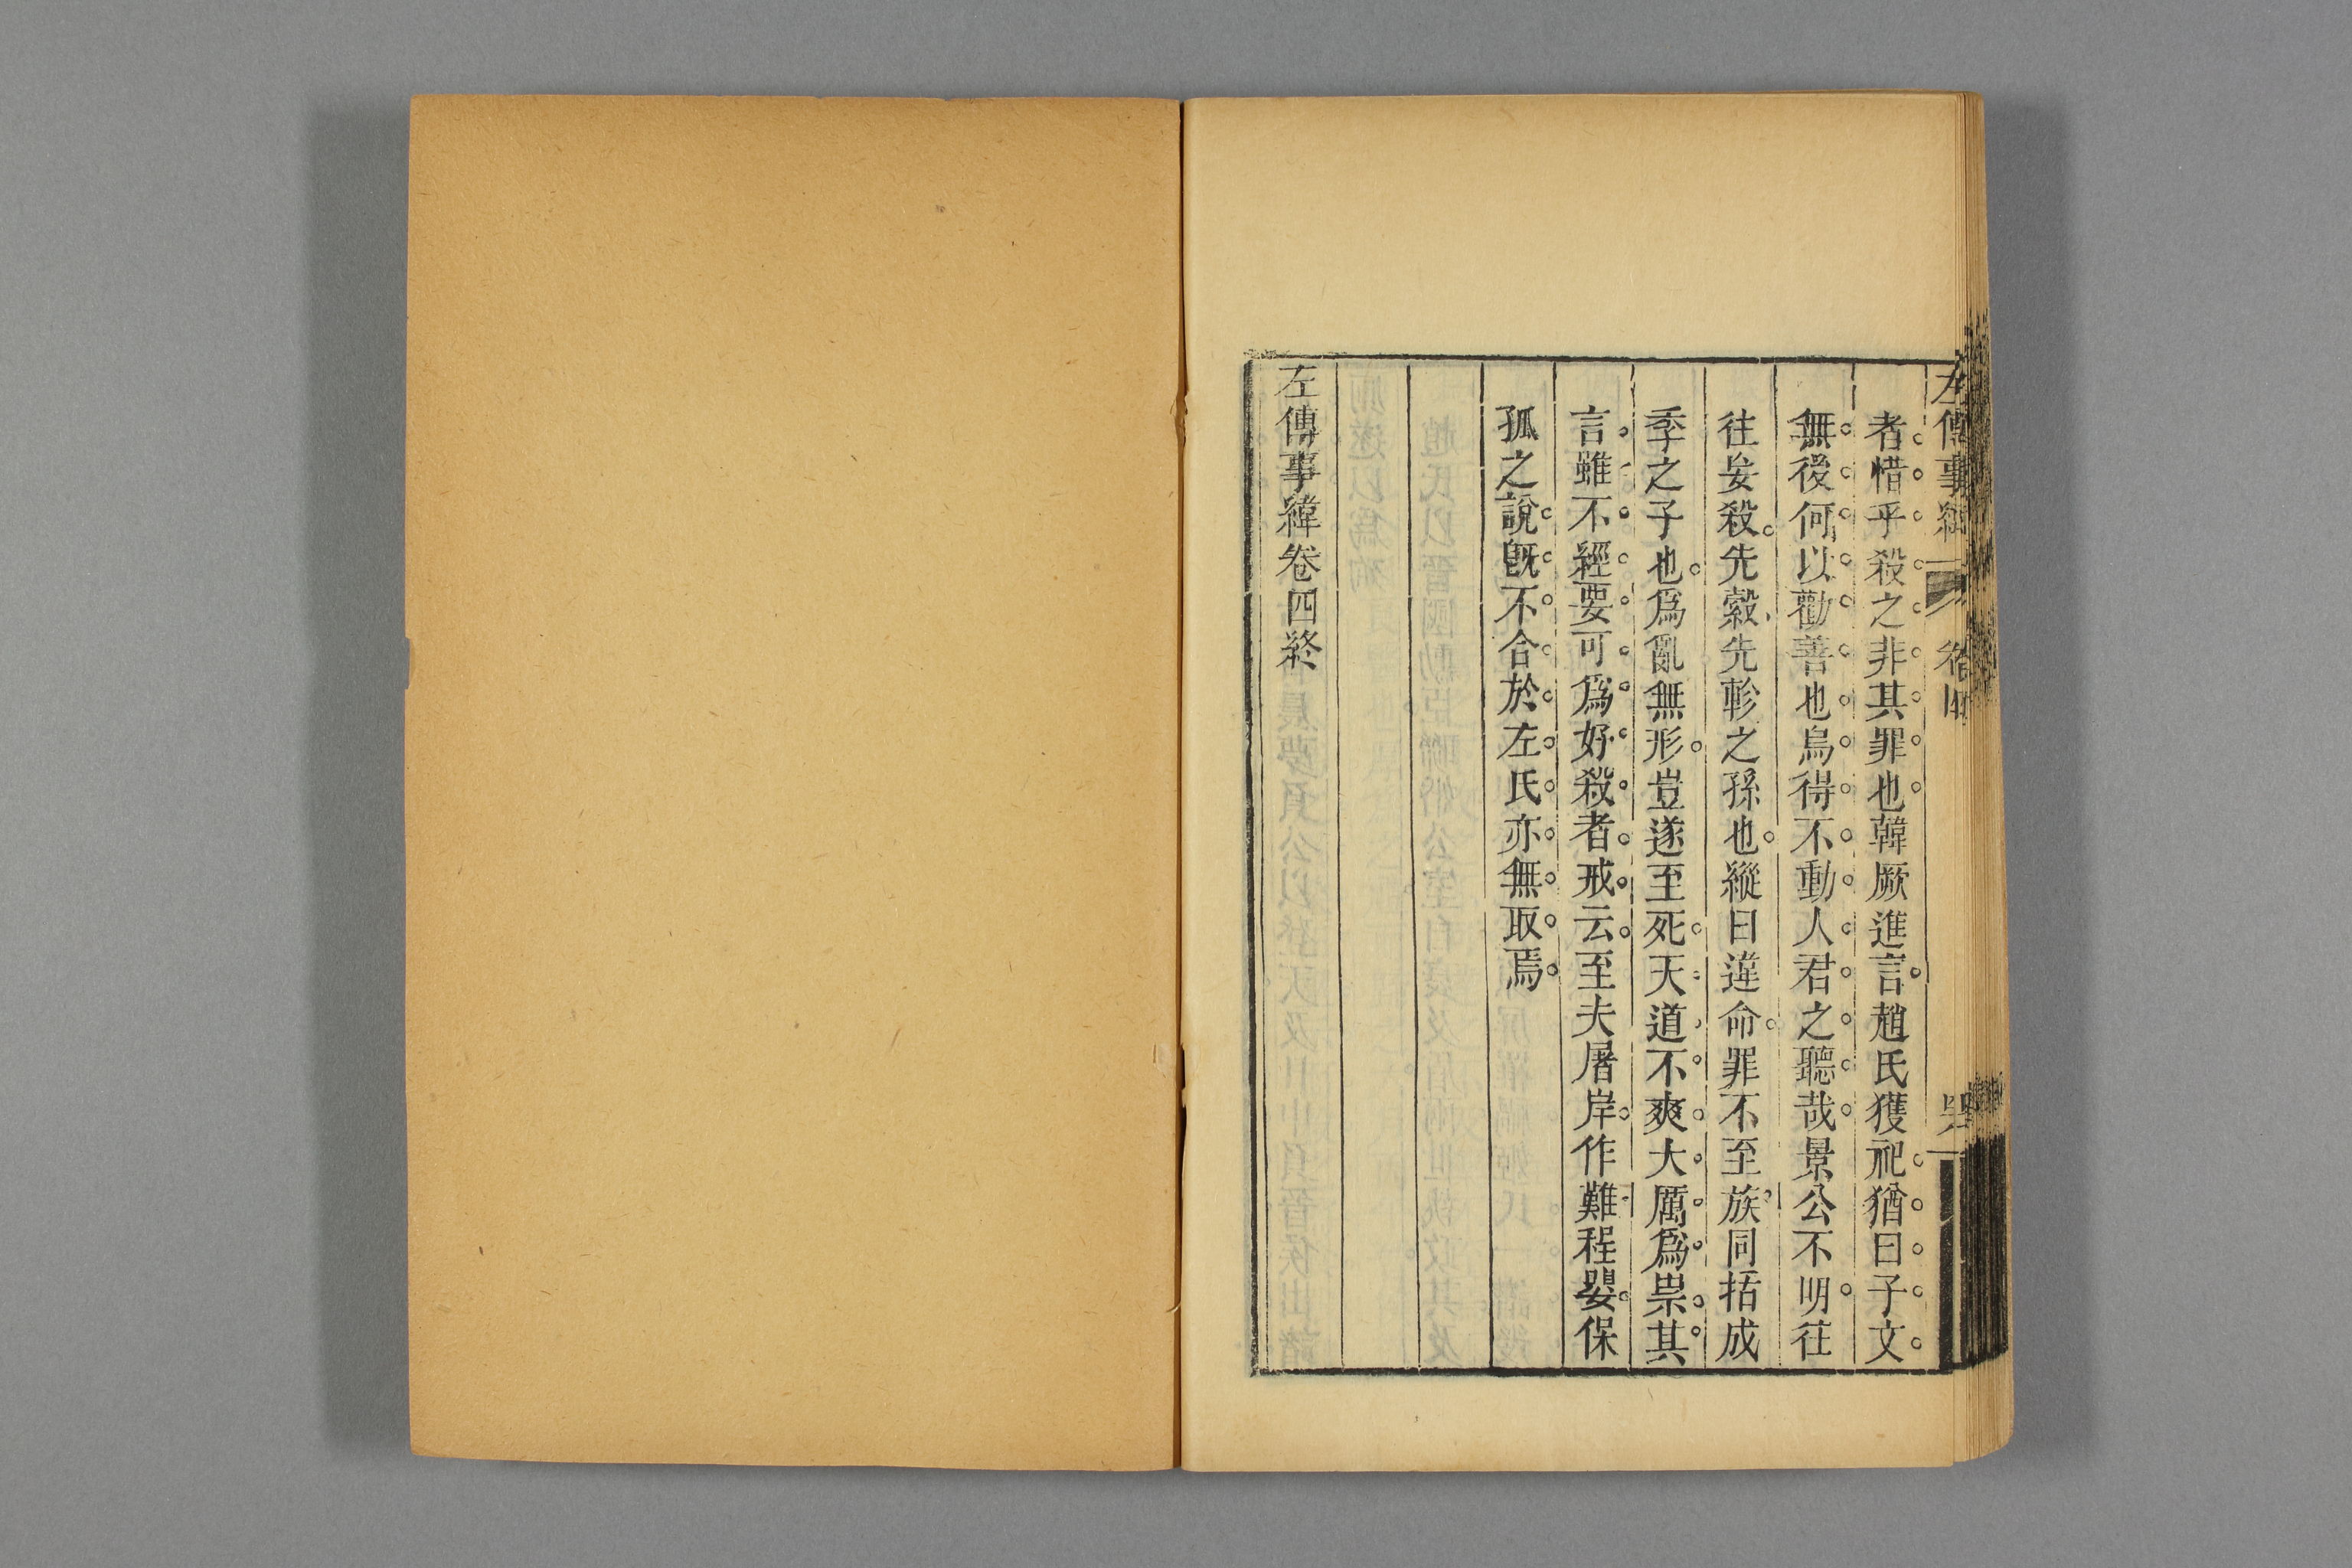 左傳事緯
卷四
者惜乎殺之非其罪也韓厥進言趙氏獲祀猶曰子文
無後何以勸善也烏得不動人君之聽哉景公不明往
往妄殺先縠先軫之孫也縱曰違命罪不至族同括成
季之子也爲亂無形豈遂至死天道不爽大厲爲祟其
言雖不經要可爲好殺者戒云至夫屠岸作難程嬰保
孤之說旣不合於左氏亦無取焉
左傳事緯卷四終